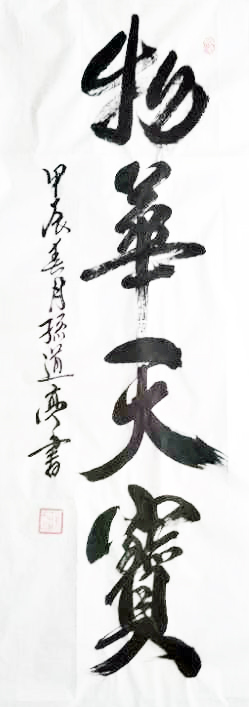 物華天寳
甲辰春月孫道亮書